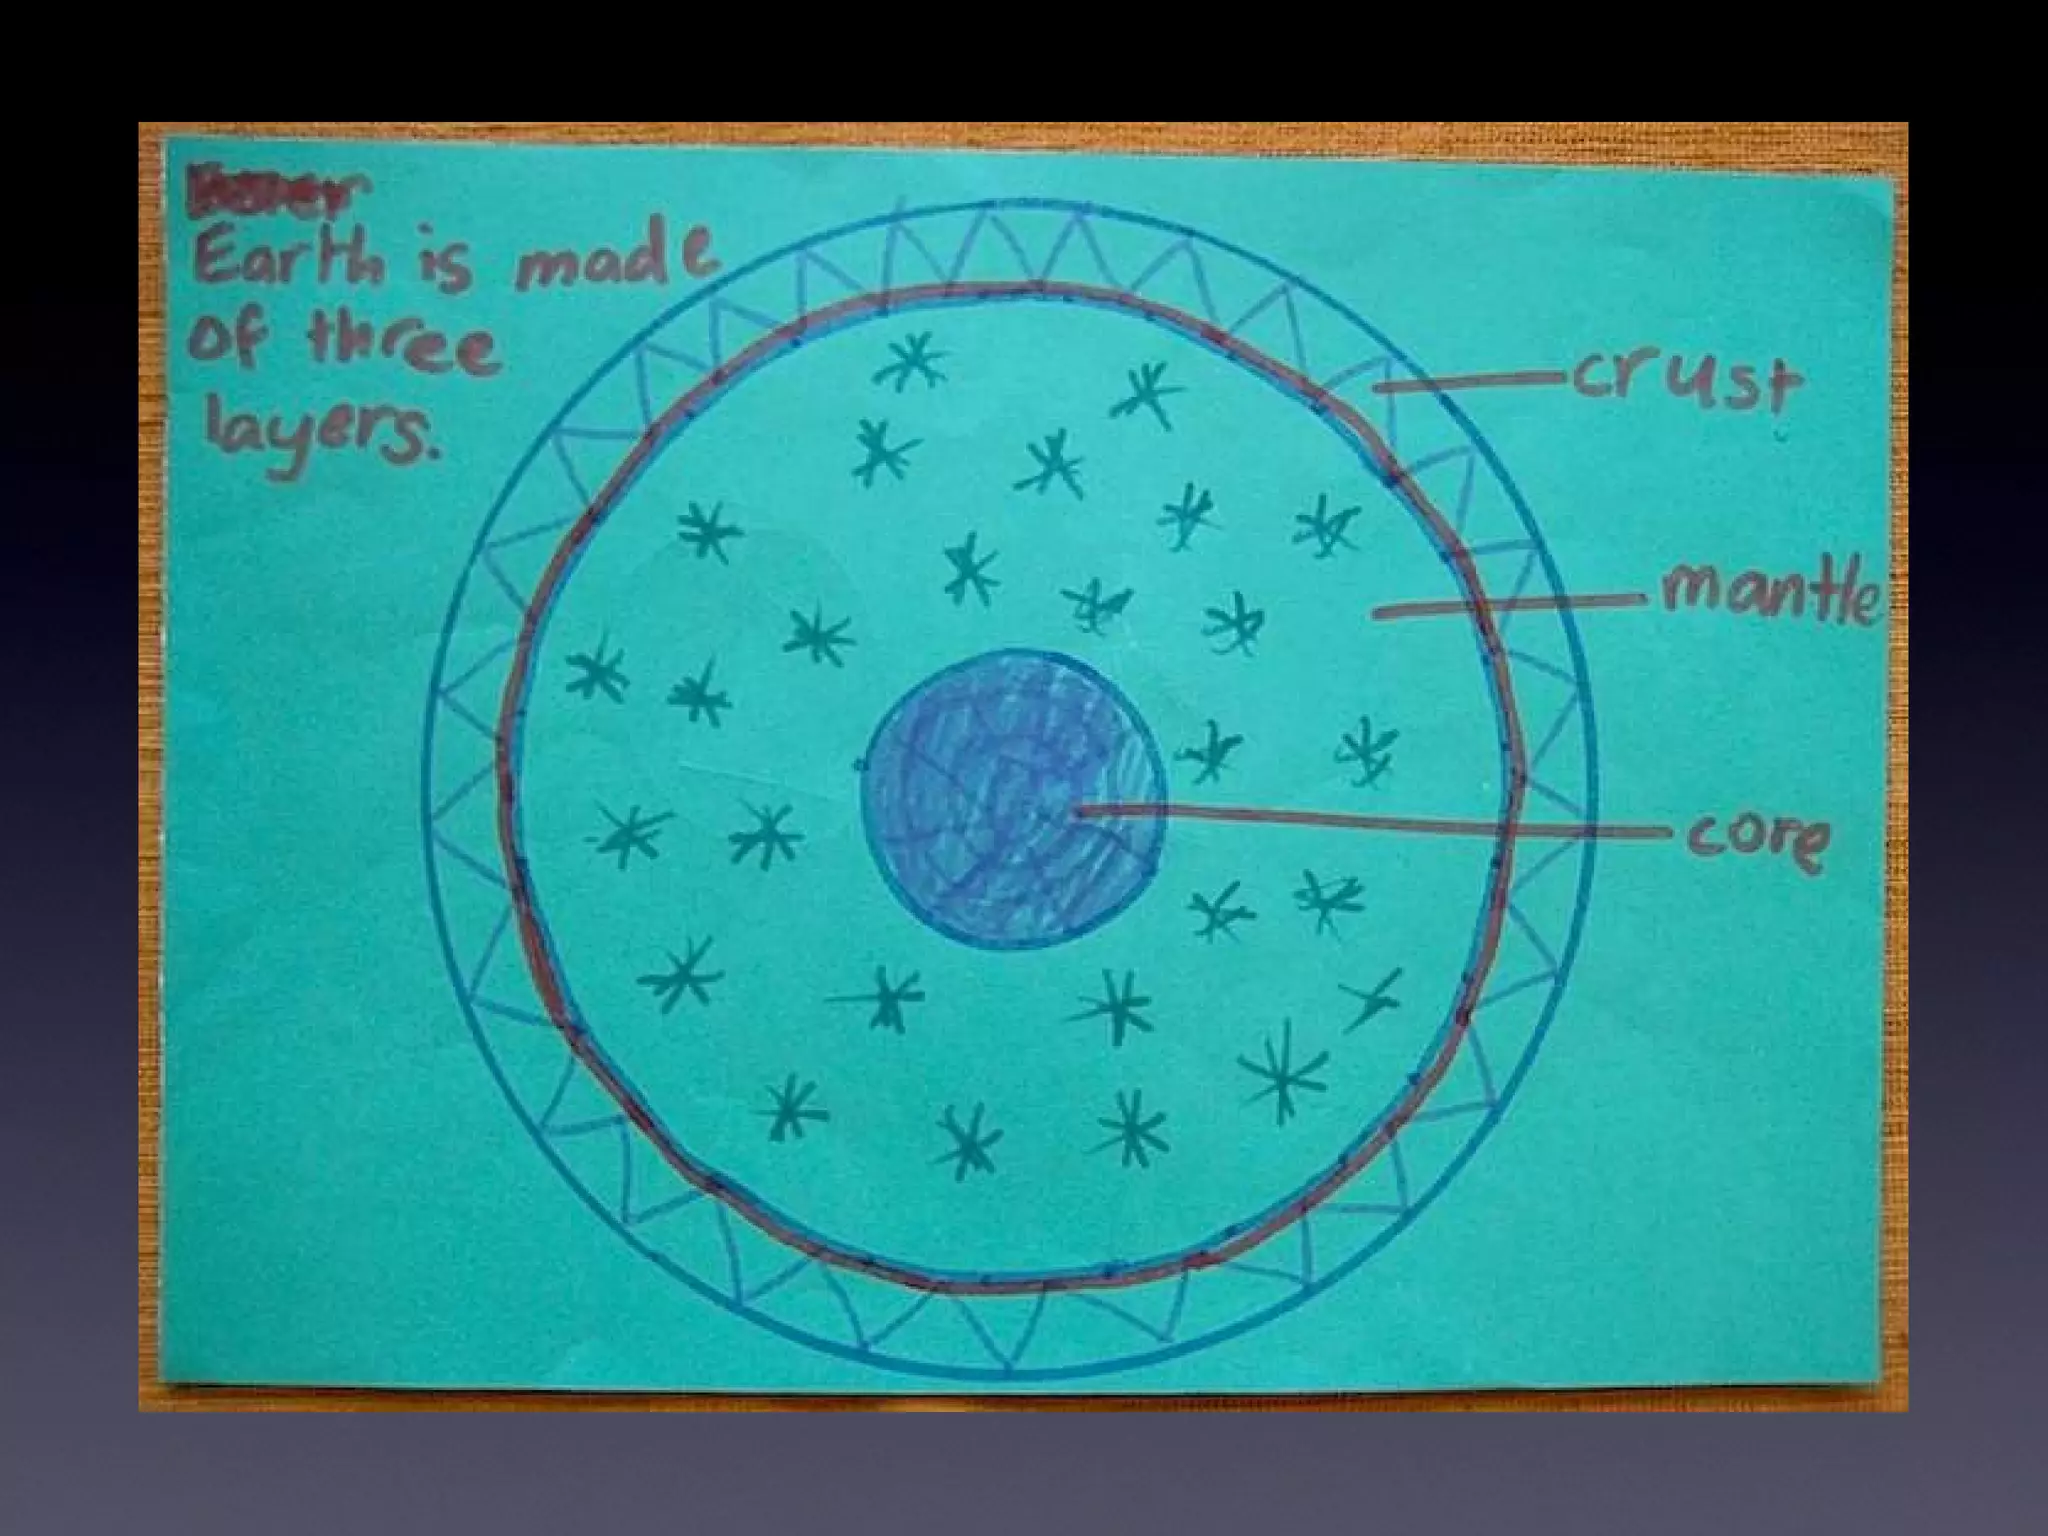 Earth is made
of three
layers.
crust
mantle
core